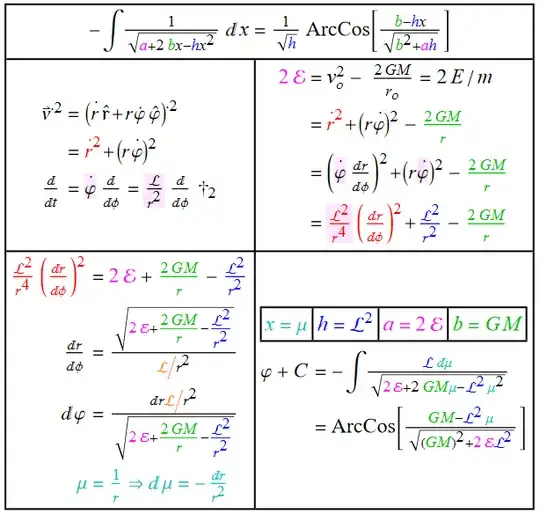 −∫ 1/√(a+2 bx−hx²) dx = 1/√h ArcCos[(b−hx)/√(b²+ah)]
v⃗˙² = (ṙ r̂ + rφ̇ φ̂)˙²
= ṙ² + (rφ̇)²
d/dt = φ̇ d/dϕ = ℒ/r² d/dϕ †₂
2 ℰ = v_o² − 2 GM/r_o = 2 E / m
= ṙ² + (rφ̇)² − 2 GM/r
= (φ̇ dr/dϕ)² + (rφ̇)² − 2 GM/r
= ℒ²/r⁴ (dr/dϕ)² + ℒ²/r² − 2 GM/r
ℒ²/r⁴ (dr/dϕ)² = 2 ℰ + 2 GM/r − ℒ²/r²
dr/dϕ = √(2 ℰ+2 GM/r−ℒ²/r²) / (ℒ/r²)
dφ = (drℒ/r²) / √(2 ℰ+2 GM/r−ℒ²/r²)
μ = 1/r ⇒ dμ = − dr/r²
x = μ | h = ℒ² | a = 2 ℰ | b = GM
φ + C = −∫ ℒ dμ/√(2 ℰ+2 GMμ−ℒ² μ²)
= ArcCos[(GM−ℒ² μ)/√((GM)²+2 ℰℒ²)]